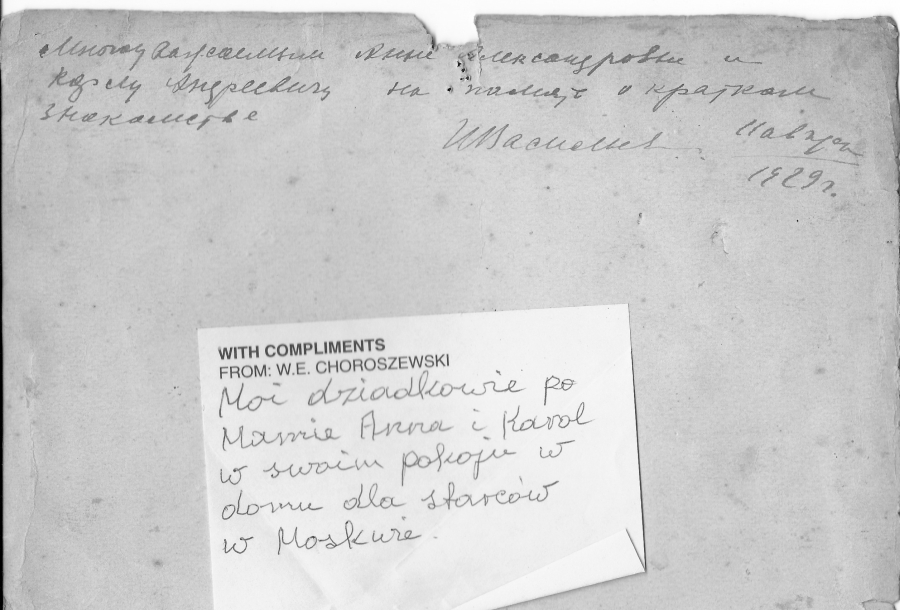 Многоуважаемым Анне Александровне и
Карлу Андреевичу на память о кратком
знакомстве
И Васильев
11 августа
1929 г.
WITH COMPLIMENTS
FROM: W.E. CHOROSZEWSKI
Moi dziadkowie po
Mamie Anna i Karol
w swoim pokoju w
domu dla starców
w Moskwie.